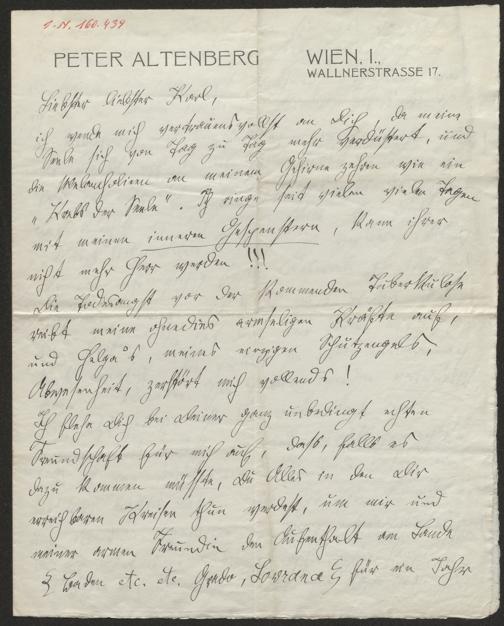 I.N. 160.439
PETER ALTENBERG WIEN, I.,
WALLNERSTRASSE 17.
Liebster Karl,
ich wende mich vertrauensvollst an Dich, da meine
Seele sich von Tag zu Tag mehr verdüstert, und
die Melancholieen an meinem Gehirne zehren wie ein
„Krebs der Seele". Ich ringe seit vielen vielen Tagen
mit meinen inneren Gespenstern, kann ihrer
nicht mehr Herr werden !!!
Die Todesangst vor der kommenden Tuberkulose
reibt meine ohnedies armseligen Kräfte auf,
und Helga's, meines einzigen Schutzengels,
Abwesenheit, zerstört mich vollends!
Ich flehe Dich bei Deiner ganz unbedingt echten
Freundschaft für mich auf, dass, falls es
dazu kommen müsste, Du Alles in den Dir
erreichbaren Kreisen thun werdest, um mir und
meiner armen Freundin den Aufenthalt am Lande
Baden etc. etc. Grado, Lovrana für ein Jahr